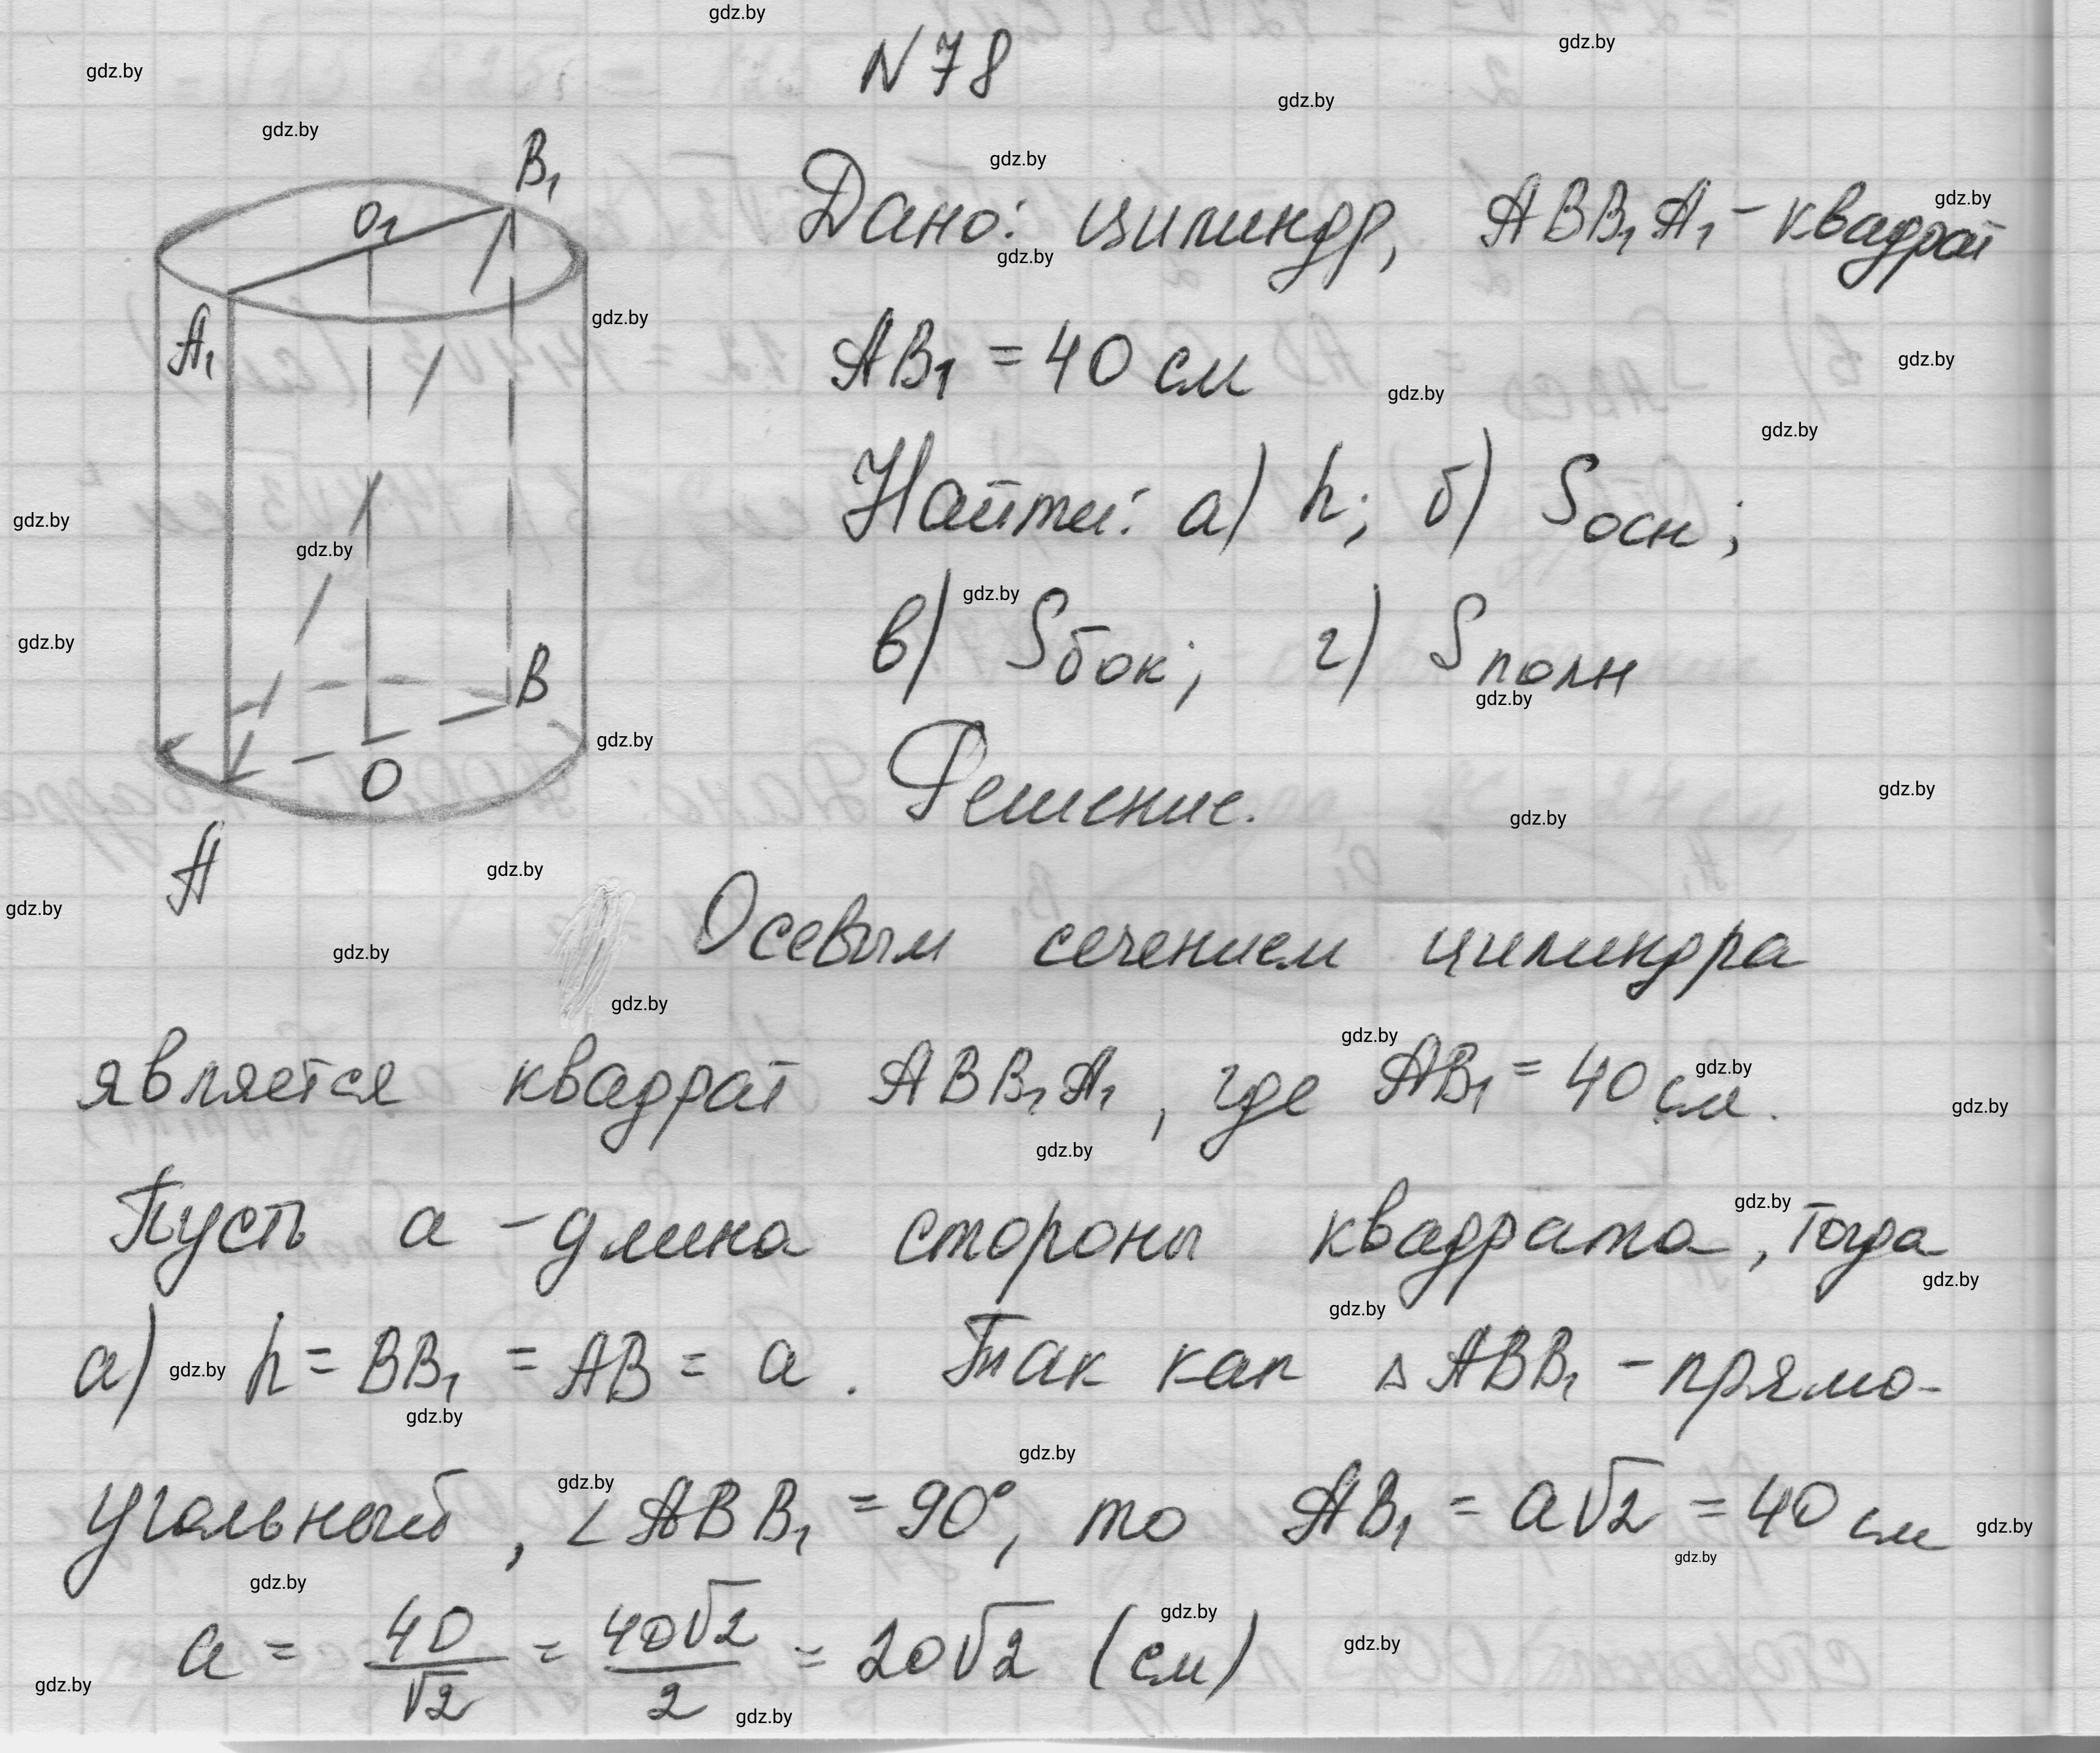 N 78
Дано: цилиндр, ABB₁A₁ - квадрат
AB₁ = 40 см
Найти: а) h; б) Sосн;
в) Sбок; г) Sполн
Решение.
B₁
O₁
A₁
B
O
A
Осевым сечением цилиндра
является квадрат ABB₁A₁, где AB₁ = 40 см.
Пусть a - длина стороны квадрата, тогда
а) h = BB₁ = AB = a. Так как △ABB₁ - прямо-
угольный, ∠ABB₁ = 90°, то AB₁ = a√2 = 40 см
a = 40/√2 = 40√2/2 = 20√2 (см)
gdz.by